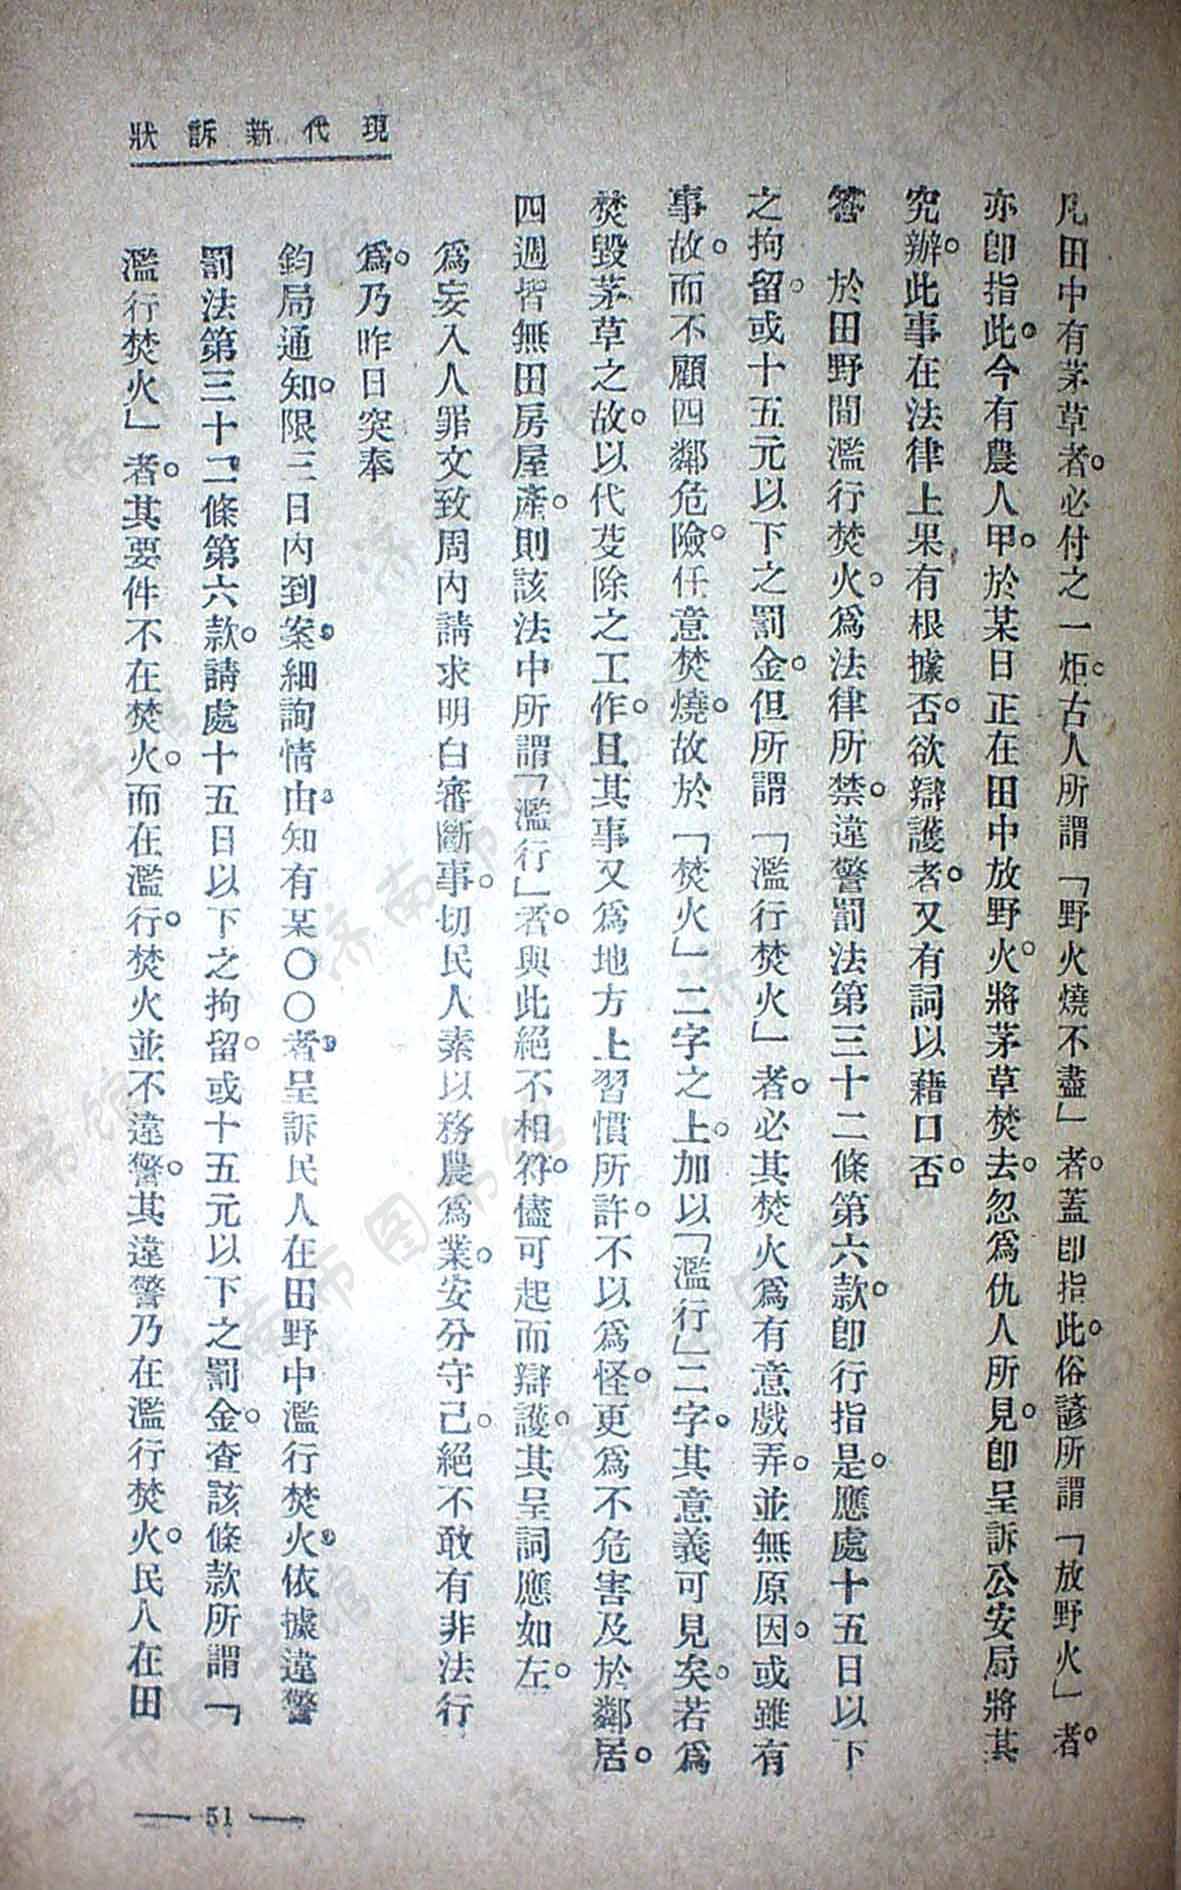 現代新訴狀
凡田中有茅草者。必付之一炬。古人所謂「野火燒不盡」者。蓋卽指此。俗諺所謂「放野火」者。
亦卽指此。今有農人甲。於某日正在田中放野火。將茅草焚去。忽爲仇人所見。卽呈訴公安局將其
究辦。此事在法律上果有根據否。欲辯護者。又有詞以藉口否。
答　於田野間濫行焚火。爲法律所禁。違警罰法第三十二條第六款。卽行指是。應處十五日以下
之拘留。或十五元以下之罰金。但所謂「濫行焚火」者。必其焚火爲有意戲弄。並無原因。或雖有
事故。而不顧四鄰危險。任意焚燒。故於「焚火」二字之上。加以「濫行」二字。其意義可見矣。若爲
焚毀茅草之故。以代芟除之工作。且其事又爲地方上習慣所許。不以爲怪。更爲不危害及於鄰居。
四週皆無田房屋產。則該法中所謂「濫行」者。與此絕不相符。儘可起而辯護。其呈詞應如左。
爲妄入人罪文致周內請求明白審斷事。切民人素以務農爲業。安分守己。絕不敢有非法行
爲。乃昨日突奉
鈞局通知。限三日內到案。細詢情由。知有某〇〇者。呈訴民人在田野中濫行焚火。依據違警
罰法第三十二條第六款。請處十五日以下之拘留。或十五元以下之罰金。查該條款所謂「
濫行焚火」者。其要件不在焚火。而在濫行。焚火並不違警。其違警乃在濫行焚火。民人在田
51